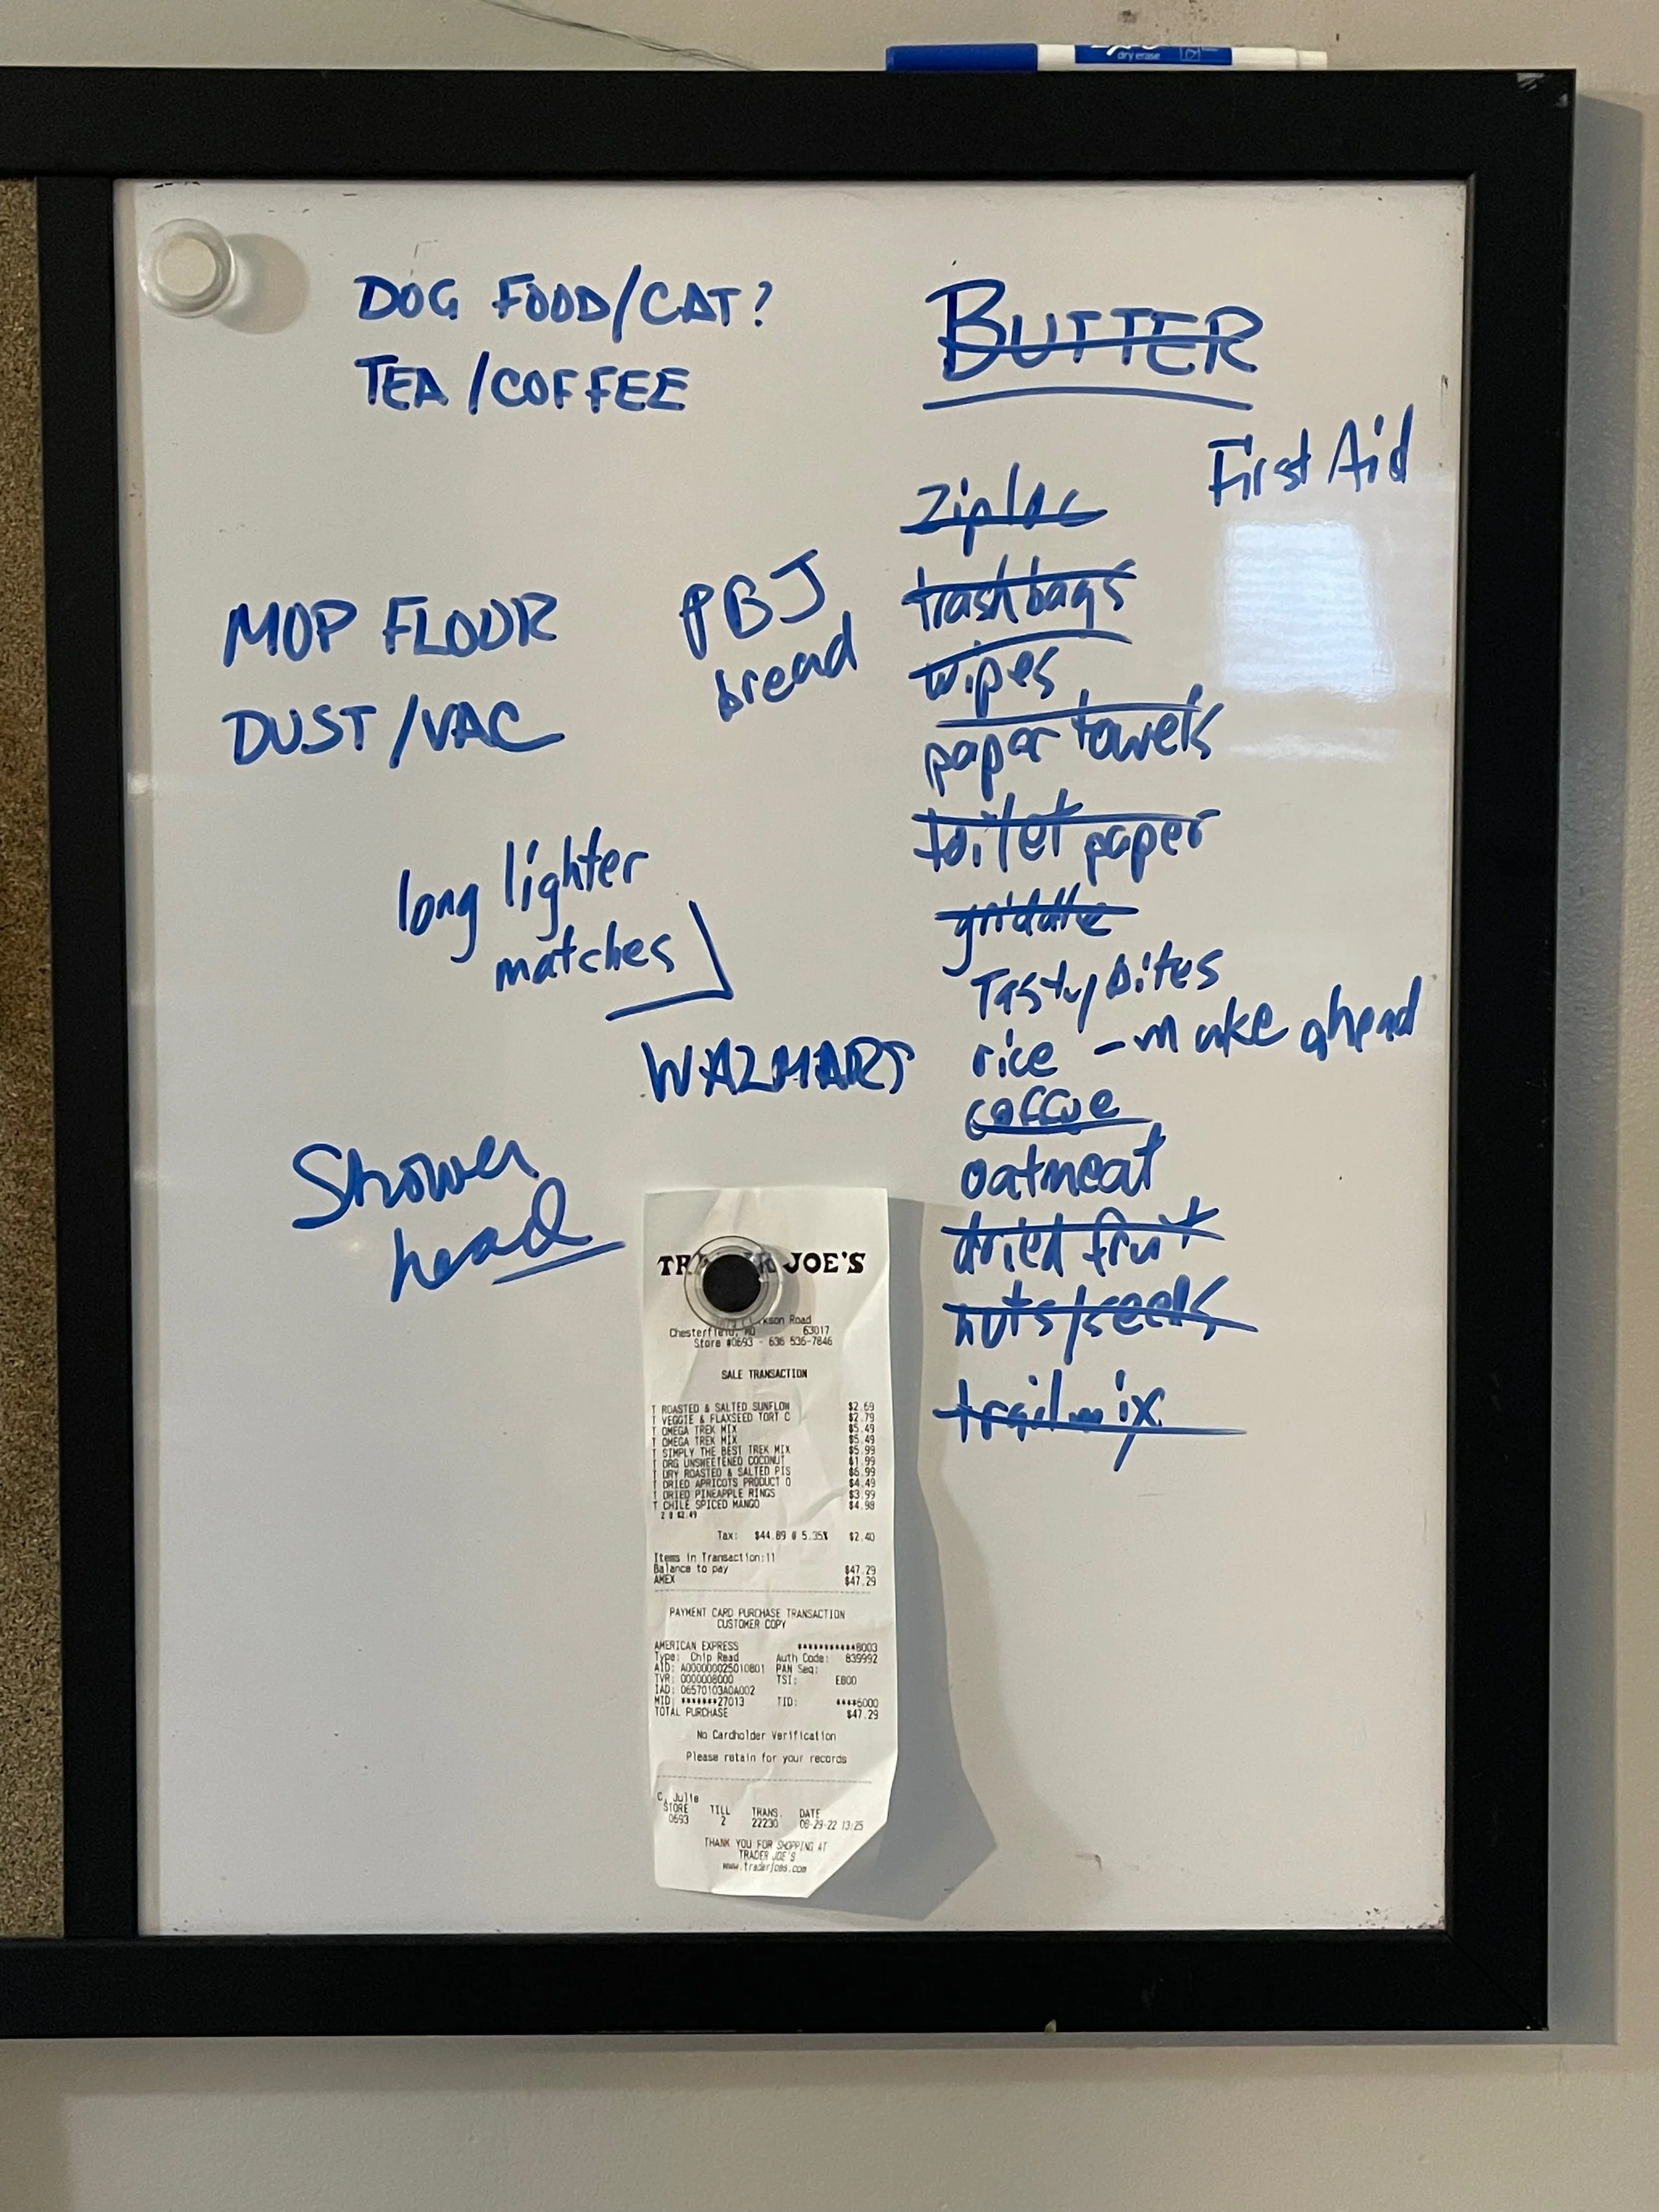 dry erase
DOG FOOD/CAT?
TEA/COFFEE
BUTTER
First Aid
ziploc
trash bags
wipes
paper towels
toilet paper
griddle
Tasty bites
rice - make ahead
coffee
oatmeal
dried fruit
nuts/seeds
trail mix
MOP FLOUR
DUST/VAC
PBJ
bread
long lighter
matches
WALMART
Shower
head
JOE'S
Road
Chesterfield, MO 63017
Store #0693 - 636 536-7846
SALE TRANSACTION
T ROASTED & SALTED SUNFLOW $2.69
T VEGGIE & FLAXSEED TORT C $2.79
T OMEGA TREK MIX $5.49
T OMEGA TREK MIX $5.49
T SIMPLY THE BEST TREK MIX $5.99
T ORG UNSWEETENED COCONUT $1.99
T DRY ROASTED & SALTED PIS $6.99
T DRIED APRICOTS PRODUCT O $4.49
T DRIED PINEAPPLE RINGS $3.99
T CHILE SPICED MANGO $4.98
2 @ $2.49
Tax: $44.89 @ 5.35% $2.40
Items in Transaction:11
Balance to pay $47.29
AMEX $47.29
PAYMENT CARD PURCHASE TRANSACTION
CUSTOMER COPY
AMERICAN EXPRESS ***********8003
Type: Chip Read Auth Code: 839992
AID: A000000025010801 PAN Seq:
TVR: 0000008000 TSI: E800
IAD: 06570103A0A002
MID: *******27013 TID: ****6000
TOTAL PURCHASE $47.29
No Cardholder Verification
Please retain for your records
C, Julie
STORE TILL TRANS. DATE
0693 2 22230 08-29-22 13:25
THANK YOU FOR SHOPPING AT
TRADER JOE'S
www.traderjoes.com